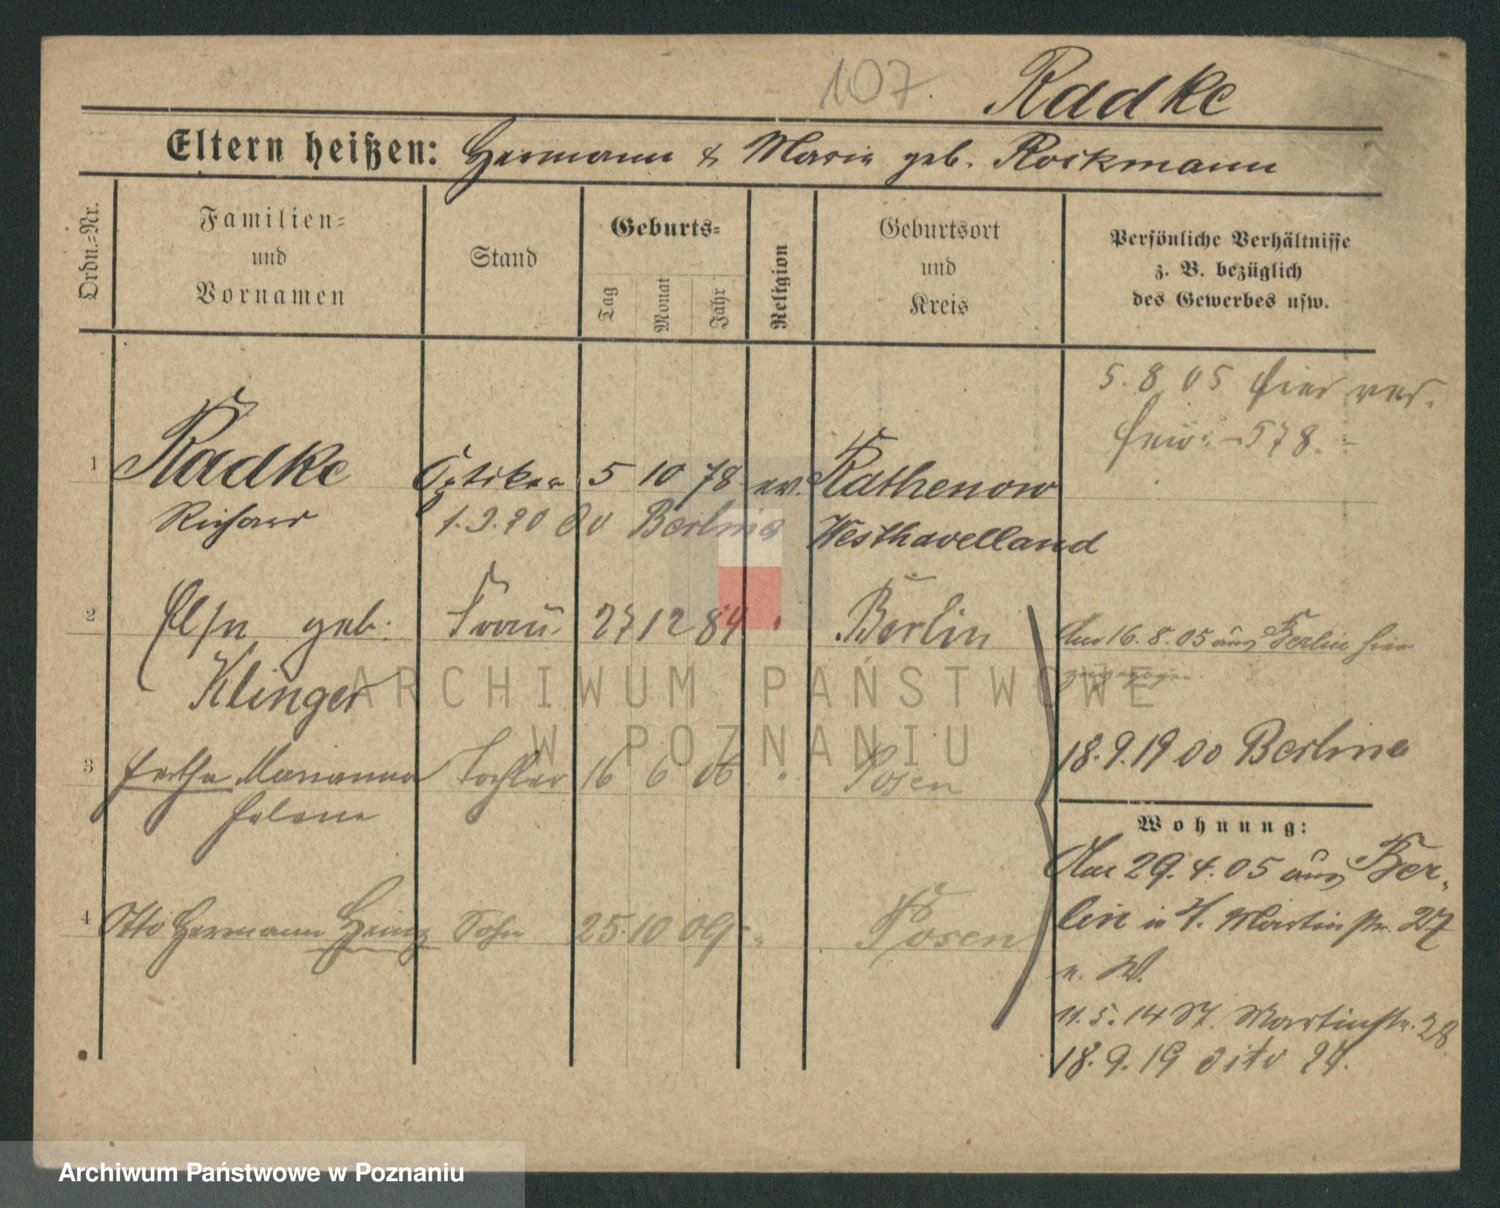 107.
Radke
Eltern heißen: Hermann & Marie geb. Rockmann
Ordn.=Nr.
Familien=
und
Vornamen
Stand
Geburts=
Tag
Monat
Jahr
Religion
Geburtsort
und
Kreis
Persönliche Verhältnisse
z. B. bezüglich
des Gewerbes usw.
5.8.05 hier
578.
1 Radke Optiker 5 10 78 ev. Rathenow
Richard
Berlin Westhavelland
2 Else geb. Frau 27 12 84 " Berlin
Klinger
Am 16.8.05 aus Berlin hier
zugezogen
18.9.19 Berlin
3 Hertha Marianna Tochter 16 6 06 " Posen
Helene
Wohnung:
Am 29.4.05 aus Ber-
lin n. St. Martinstr. 27
4 Otto Hermann Heinz Sohn 25. 10 09 " Posen
n. W.
11.5.14 St. Martinstr. 28
18.9.19 dito 24.
ARCHIWUM PAŃSTWOWE
W POZNANIU
Archiwum Państwowe w Poznaniu